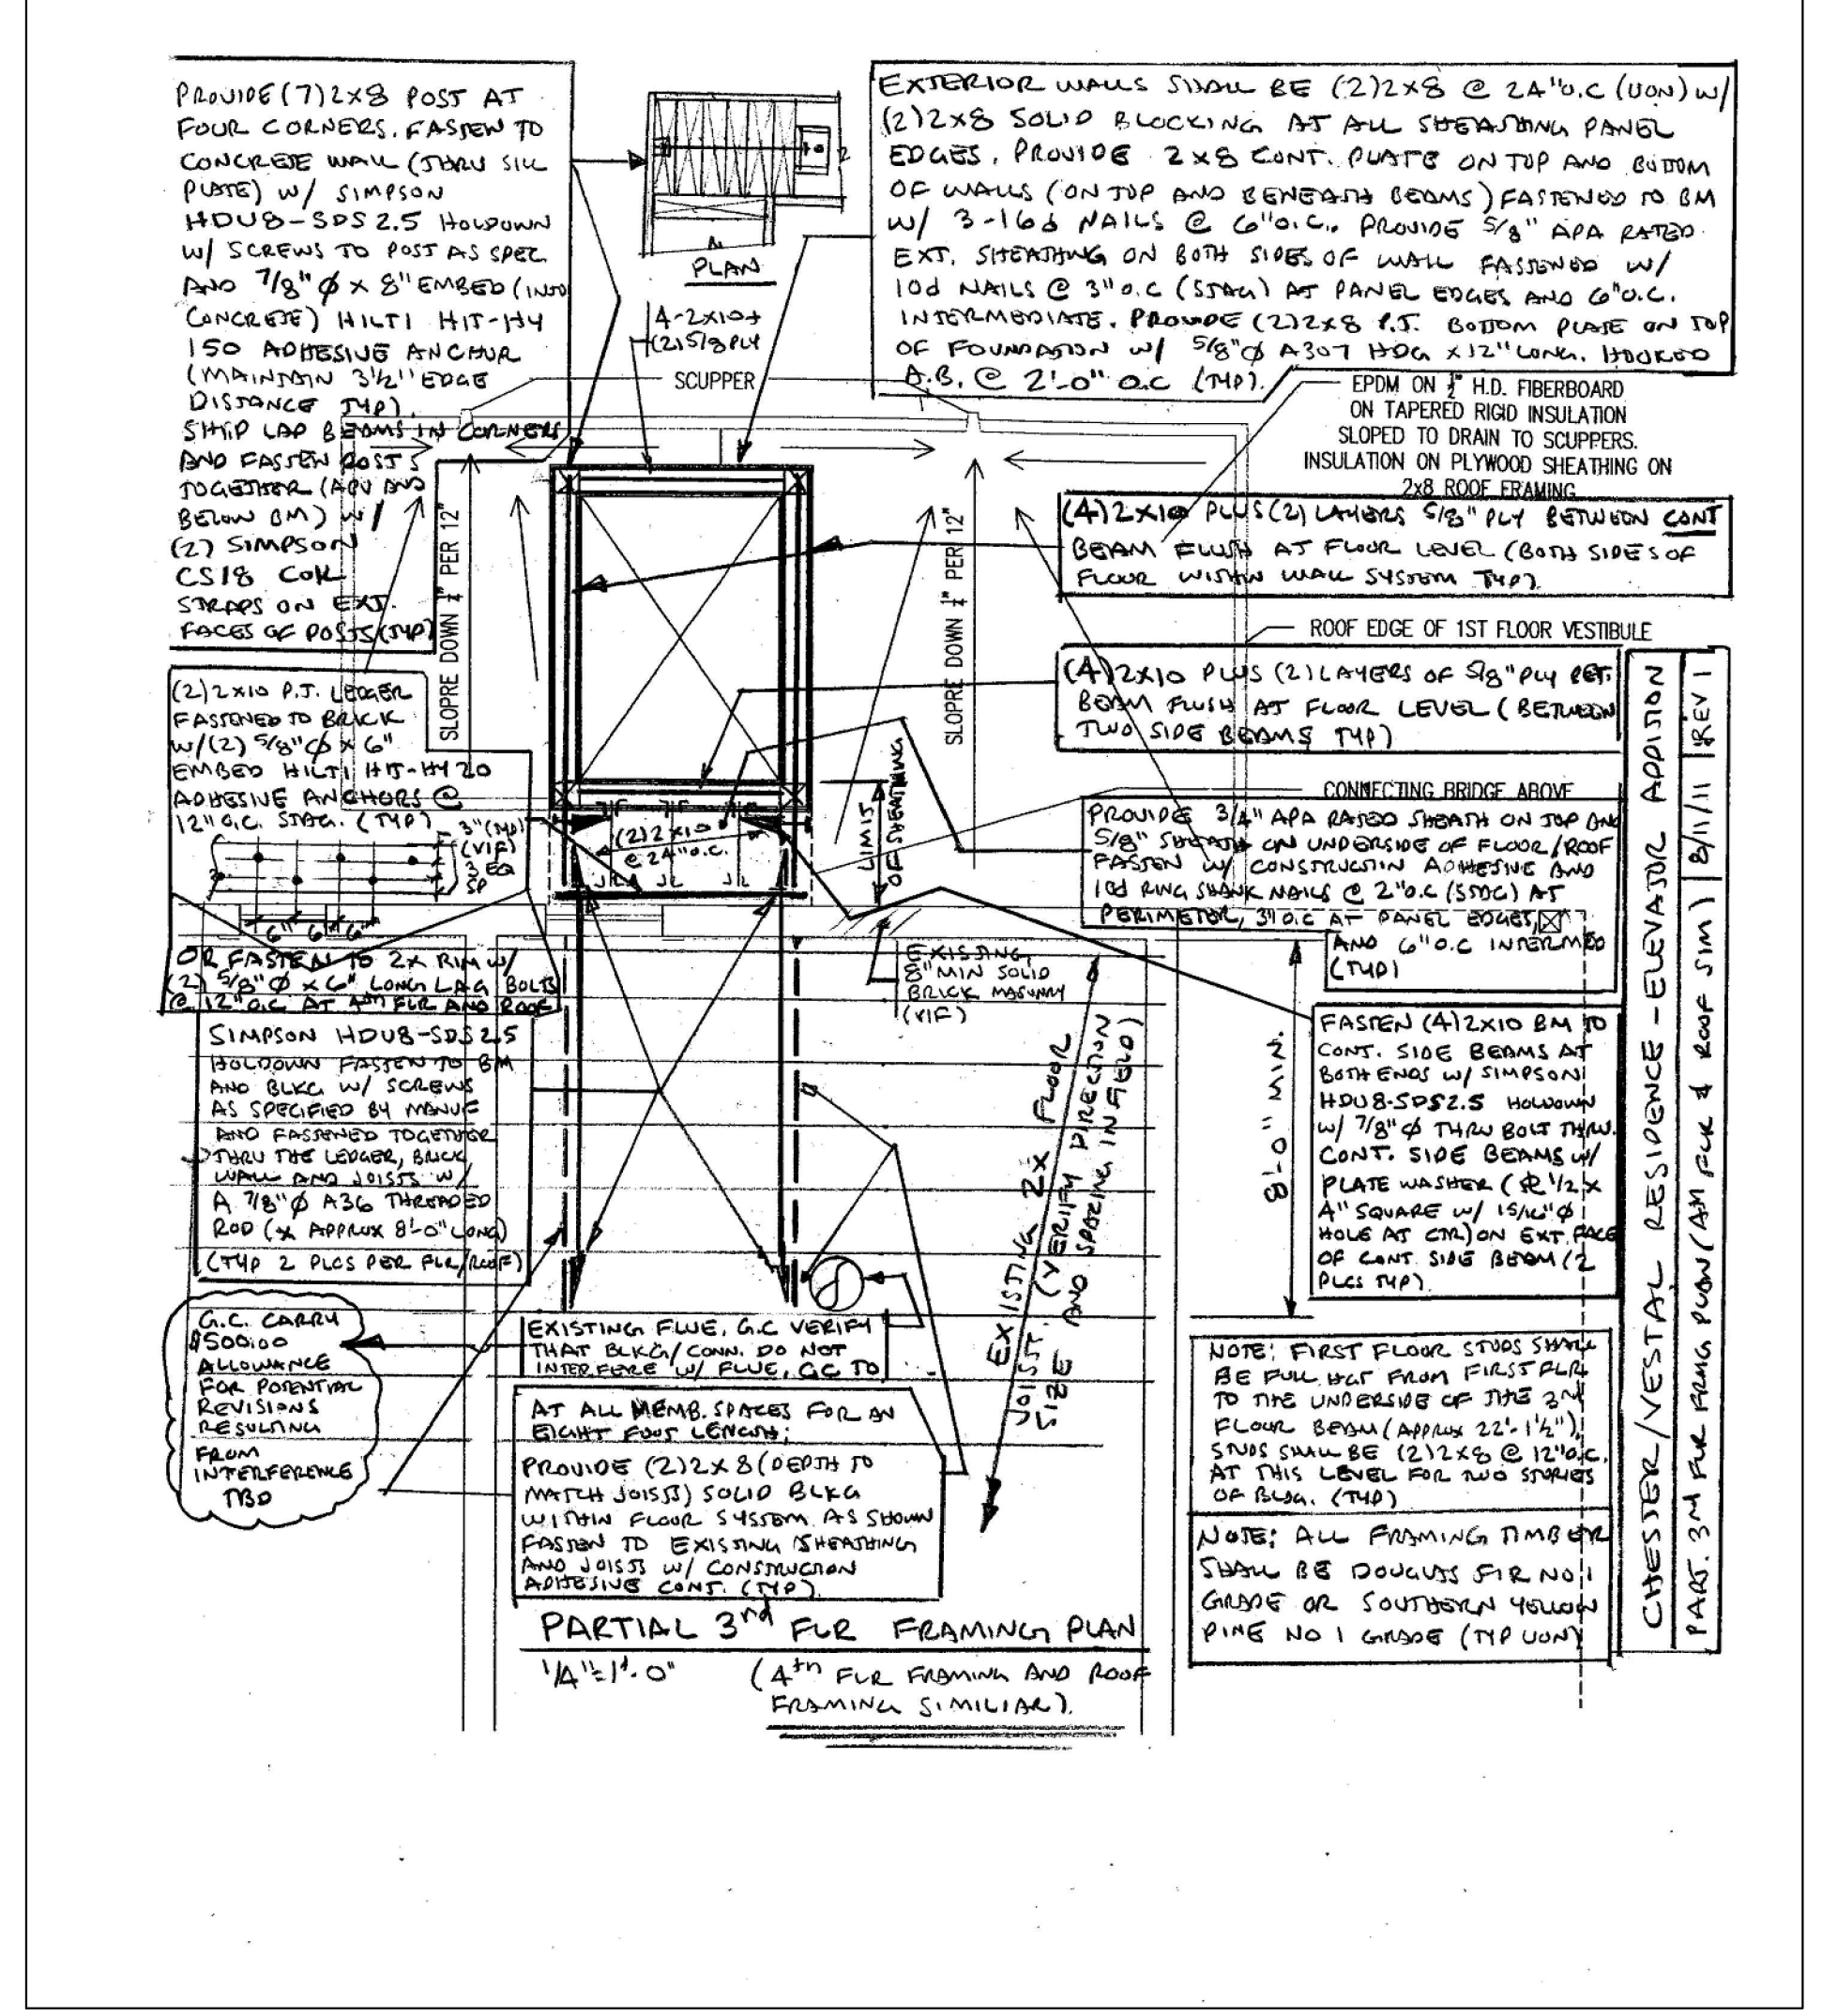 PROVIDE (7) 2x8 POST AT
FOUR CORNERS. FASTEN TO
CONCRETE WALL (THRU SILL
PLATE) W/ SIMPSON
HDU8-SDS 2.5 HOLDOWN
W/ SCREWS TO POST AS SPEC
AND 7/8"Φ x 8" EMBED (INTO
CONCRETE) HILTI HIT-HY
150 ADHESIVE ANCHOR
(MAINTAIN 3½" EDGE
DISTANCE TYP).
SHIP LAP BEAMS IN CORNERS
AND FASTEN POSTS
TOGETHER (ABV AND
BELOW BM) W/
(2) SIMPSON
CS18 COIL
STRAPS ON EXT.
FACES OF POSTS (TYP)
PLAN
4-2x10+
(2) 5/8 PLY
SCUPPER
EXTERIOR WALLS SHALL BE (2) 2x8 @ 24"O.C (UON) W/
(2) 2x8 SOLID BLOCKING AT ALL SHEATHING PANEL
EDGES. PROVIDE 2x8 CONT. PLATE ON TOP AND BOTTOM
OF WALLS (ON TOP AND BENEATH BEAMS) FASTENED TO BM
W/ 3-16d NAILS @ 6"O.C.. PROVIDE 5/8" APA RATED
EXT. SHEATHING ON BOTH SIDES OF WALL FASTENED W/
10d NAILS @ 3"O.C (STAG) AT PANEL EDGES AND 6"O.C.
INTERMEDIATE. PROVIDE (2) 2x8 P.T. BOTTOM PLATE ON TOP
OF FOUNDATION W/ 5/8"Φ A307 HDG x 12" LONG. HOOKED
A.B. @ 2'-0" O.C (TYP).
EPDM ON ½" H.D. FIBERBOARD
ON TAPERED RIGID INSULATION
SLOPED TO DRAIN TO SCUPPERS.
INSULATION ON PLYWOOD SHEATHING ON
2x8 ROOF FRAMING
(4) 2x10 PLUS (2) LAYERS 5/8" PLY BETWEEN CONT
BEAM FLUSH AT FLOOR LEVEL (BOTH SIDES OF
FLOOR WITHIN WALL SYSTEM TYP).
SLOPRE DOWN ¼" PER 12"
SLOPRE DOWN ¼" PER 12"
ROOF EDGE OF 1ST FLOOR VESTIBULE
(4) 2x10 PLUS (2) LAYERS OF 5/8" PLY BET.
BEAM FLUSH AT FLOOR LEVEL (BETWEEN
TWO SIDE BEAMS TYP)
(2) 2x10 P.T. LEDGER
FASTENED TO BRICK
W/ (2) 5/8"Φ x 6"
EMBED HILTI HIT-HY 20
ADHESIVE ANCHORS @
12"O.C. STAG. (TYP)
3" (TYP)
(VIF)
3 EQ
SP
6" 6" 6"
OR FASTEN TO 2x RIM W/
(2) 5/8"Φ x 6" LONG LAG BOLTS
@ 12"O.C AT 4th FLR AND ROOF
(2) 2x10
@ 24"O.C.
LIMIT
OF SHEATHING
CONNECTING BRIDGE ABOVE
PROVIDE 3/4" APA RATED SHEATH ON TOP AND
5/8" SHEATH ON UNDERSIDE OF FLOOR/ROOF
FASTEN W/ CONSTRUCTIN ADHESIVE AND
10d RING SHANK NAILS @ 2"O.C (STAG) AT
PERIMETER, 3"O.C AT PANEL EDGES,
AND 6"O.C INTERMED
(TYP)
EXISTING,
8" MIN SOLID
BRICK MASONRY
(VIF)
SIMPSON HDU8-SDS 2.5
HOLDOWN FASTEN TO BM
AND BLKG W/ SCREWS
AS SPECIFIED BY MANUF
AND FASTENED TOGETHER
THRU THE LEDGER, BRICK
WALL AND JOISTS W/
A 7/8"Φ A36 THREADED
ROD (x APPROX 8'-0" LONG)
(TYP 2 PLCS PER FLR/ROOF)
EXISTING 2x FLOOR
JOIST. (VERIFY DIRECTION
SIZE AND SPACING IN FIELD)
8'-0" MIN.
FASTEN (4) 2x10 BM TO
CONT. SIDE BEAMS AT
BOTH ENDS W/ SIMPSON
HDU8-SDS2.5 HOLDOWN
W/ 7/8"Φ THRU BOLT THRU.
CONT. SIDE BEAMS W/
PLATE WASHER (PL 1/2 x
4" SQUARE W/ 15/16"Φ
HOLE AT CTR) ON EXT. FACE
OF CONT. SIDE BEAM (2
PLCS TYP).
G.C. CARRY
$500.00
ALLOWANCE
FOR POTENTIAL
REVISIONS
RESULTING
FROM
INTERFERENCE
TBD
EXISTING FLUE, G.C VERIFY
THAT BLKG/CONN. DO NOT
INTERFERE W/ FLUE, GC TO
AT ALL MEMB. SPACES FOR AN
EIGHT FOOT LENGTH;
PROVIDE (2) 2x8 (DEPTH TO
MATCH JOISTS) SOLID BLKG
WITHIN FLOOR SYSTEM AS SHOWN
FASTEN TO EXISTING SHEATHING
AND JOISTS W/ CONSTRUCTION
ADHESIVE CONT. (TYP).
NOTE: FIRST FLOOR STUDS SHALL
BE FULL HGT FROM FIRST FLR
TO THE UNDERSIDE OF THE 3rd
FLOOR BEAM (APPROX 22'-1½").
STUDS SHALL BE (2) 2x8 @ 12"O.C.
AT THIS LEVEL FOR TWO STORIES
OF BLDG. (TYP)
NOTE: ALL FRAMING TIMBER
SHALL BE DOUGLAS FIR NO 1
GRADE OR SOUTHERN YELLOW
PINE NO 1 GRADE (TYP UON)
PARTIAL 3rd FLR FRAMING PLAN
1/4"=1'-0" (4th FLR FRAMING AND ROOF
FRAMING SIMILIAR).
CHESTER/VESTAL RESIDENCE - ELEVATOR ADDITION
PART. 3rd FLR FRMG PLAN (4th FLR & ROOF SIM) 8/11/11 REV 1